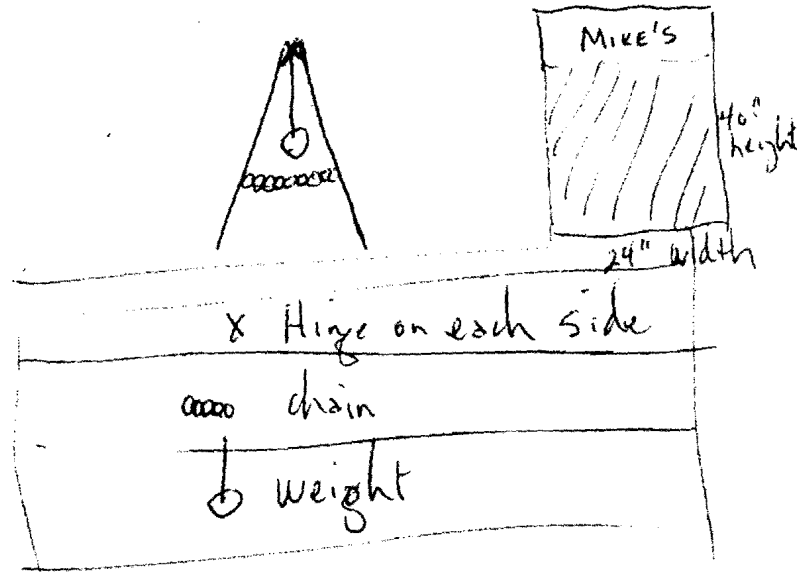 MIKE'S
40"
height
24" width
X Hinge on each side
chain
weight